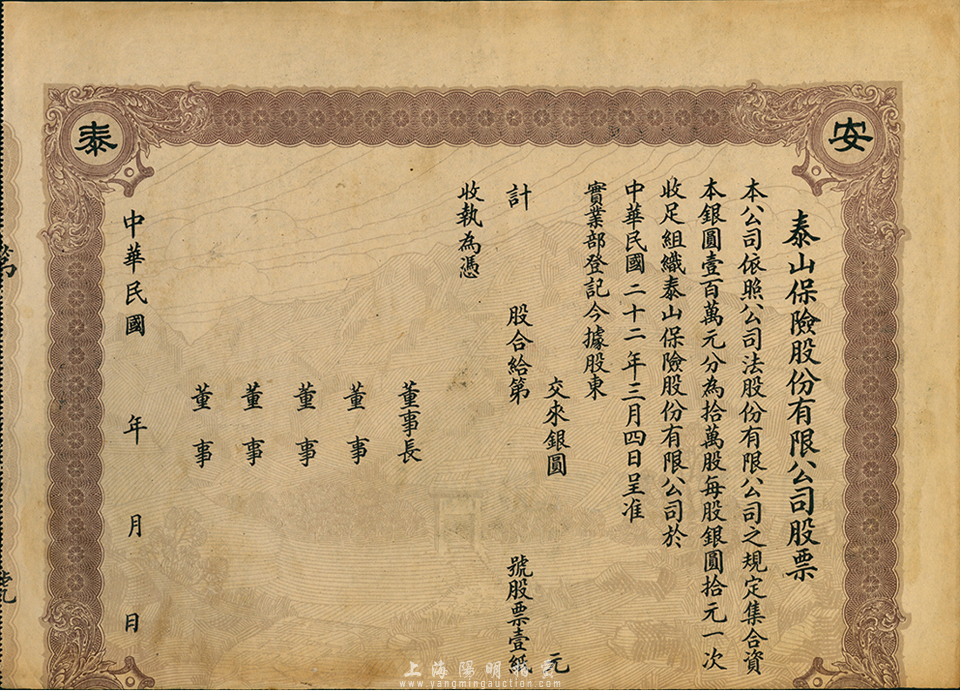 安
泰
泰山保險股份有限公司股票
本公司依照公司法股份有限公司之規定集合資
本銀圓壹百萬元分為拾萬股每股銀圓拾元一次
收足組織泰山保險股份有限公司於
中華民國二十二年三月四日呈准
實業部登記今據股東
交來銀圓 元
計 股合給第 號股票壹紙
收執為憑
董事長
董事
董事
董事
董事
中華民國 年 月 日
上海陽明拍賣
www.yangmingauction.com